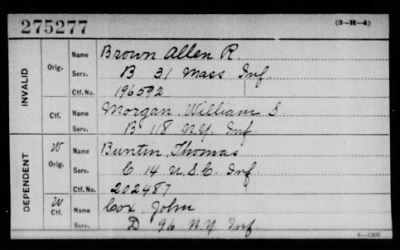 275277 (3-H-4)
INVALID Orig. Name Brown Allen R.
Serv. B 31 Mass Inf.
Ctf. No. 196592
Ctf. Name Morgan, William S.
Serv. B 118 N.Y. Inf.
DEPENDENT W Orig. Name Buntin, Thomas
Serv. C 14 U.S.C. Inf
Ctf. No. 202487
W Ctf. Name Cox, John
Serv. D 96 N.Y Inf.